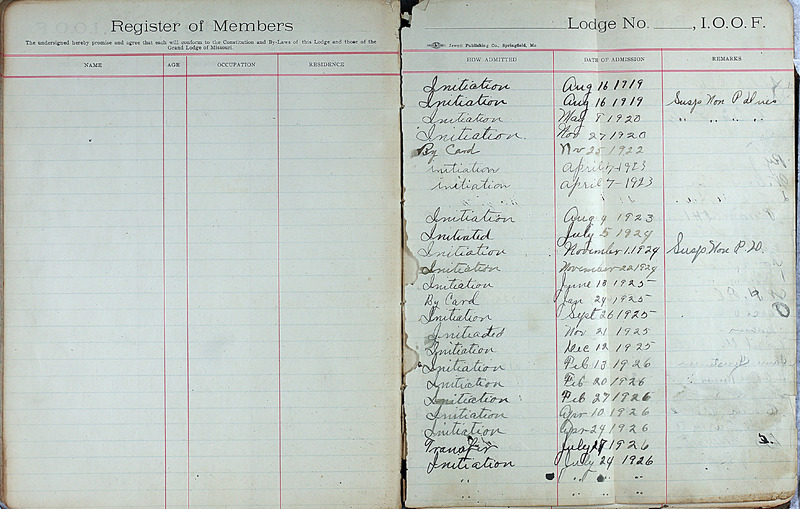 Register of Members
The undersigned hereby promise and agree that each will conform to the Constitution and By-Laws of this Lodge and those of the
Grand Lodge of Missouri.
NAME AGE OCCUPATION RESIDENCE
Lodge No. , I. O. O. F.
Jewett Publishing Co., Springfield, Mo.
HOW ADMITTED DATE OF ADMISSION REMARKS
Initiation Aug 16 1919
Initiation Aug 16 1919 Susp Non P dues
Initiation May 8 1920 " " " "
Initiation Nov 27 1920
By Card Nov 25 1922
initiation April 7-1923
initiation April 7-1923
Initiation Aug 4 1923
Initiated July 5 1924
Initiation November 1, 1924 Susp. Non P. D.
Initiation November 22 1924
Initiation June 13 1925
By Card Jan 24 1925
Initiation Sept 26 1925
Initiated Nov 21 1925
Initiation Dec 12 1925
Initiation Feb 13 1926
Initiation Feb 20 1926
Initiation Feb 27 1926
Initiation Apr 10 1926
Initiation Apr 24 1926
Transfer July 1926
Initiation July 24 1926
" " "